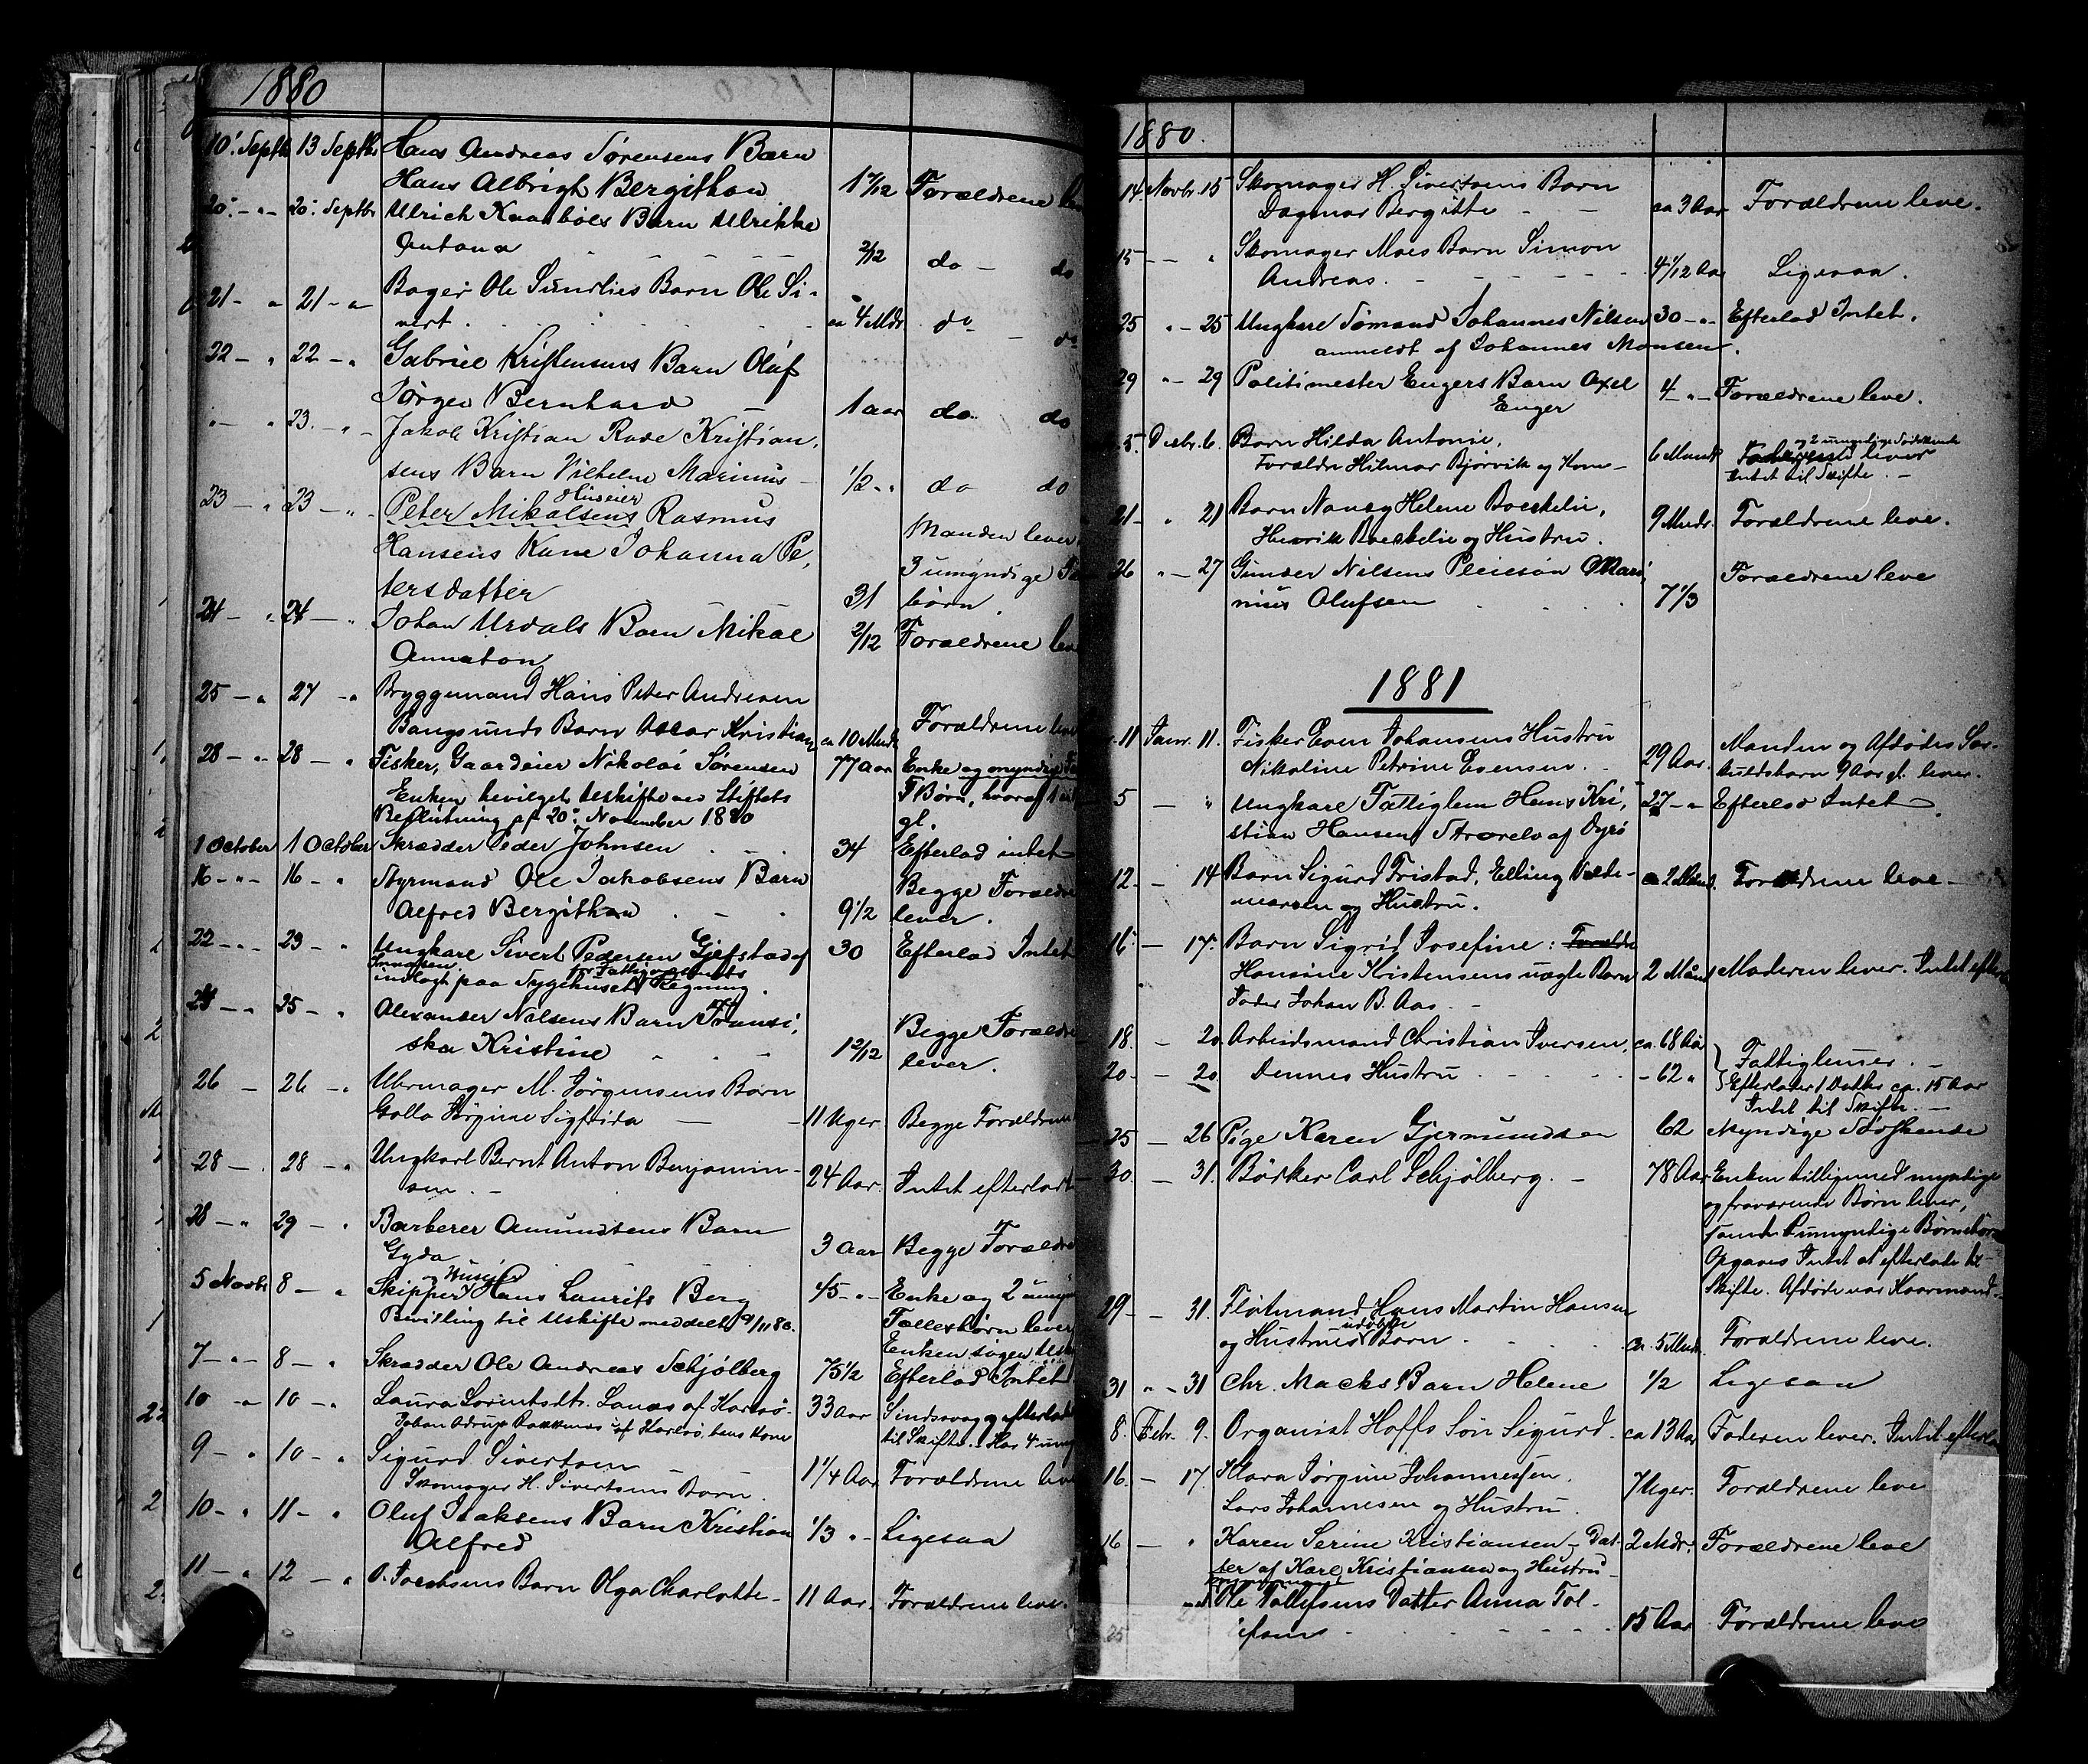 1880
10. Septb 13 Septbr Hans Andreas Sørensens Barn
Hans Albrigt Bergithon 1 7/12 Forældrene
20. - " - 20. Septbr Ulrich Kaarbøes Barn Ulrikke
Antona 2/12 do - do
21 - " 21 - " Bager Ole Sundlies Barn Ole Si-
vert ca 4 Mdr do - do
22 - " 22 - " Gabriel Kristensens Barn Oluf
Jørgen Bernhard 1 aar do do
" - " 23. - " - Jakob Kristian Rode Kristian-
sens Barn Vilhelm Marinus - 1/2 - " do do
23 - " 23 - " - Peter Mikalsens Huseier Rasmus
Hansens Kone Johanna Pe- Manden lever
tersdatter 31 3 umyndige
børn.
24 - " 24 - " Johan Urdals Barn Mikal
Annaton 2/12 Forældrene
25 - " 27 - " Bryggemand Hans Peter Andresen
Bangsunds Barn Oscar Kristian ca 10 Mndr Forældrene
28 - " - 28 - " Fisker, Gaardeier Nikolai Sørensen 77 aar Enke og myndige
Enken bevilget Uskifte ved Stiftets 7 Børn, hvoraf 1
Beslutning af 20. November 1880 gl.
1 October 1 October Skrædder Peder Johnsen 34 Efterlod intet
16 - " - 16 - " Styrmand Ole Jakobsens Barn Begge Forældre
Alfred Bergithon 9 1/2 lever.
22 - " - 23 - " Ungkare Sivert Pedersen Gjefstad af 30 Efterlod Intet
indlagt paa Sygehuset for Fattigvæsenets Regning.
24 - " - 25 - " Alexander Nilsens Barn Fransi- Begge Forældre
ska Kristine 1 2/12 lever.
26 - 26 - " Uhrmager M. Jørgensens Barn
Golla Jørgine Sigfrida - 11 Uger Begge Forældrene
28 - 28 - " Ungkarl Bernt Anton Benjamin-
sen. - 24 Aar. Intet efterladt
28 - " 29 - " Barberer Amundsens Barn
Gyda 3 Aar Begge Forældre
5 Novbr 8 - " Skipper og Huseier Hans Laurits Berg 45 - " - Enke og 2
Bevilling til Uskifte meddelt 9/11 80. Fællesbørn lever
Enken søgen
7 - " - 8 - " Skrædder Ole Andreas Schjølberg 75 1/2 Efterlod Intet
10 " 10 - " Laura Lorentsdtr. Lanes af Karlsø. 33 aar Sindssvag, efterladt
Johan af Karlsø, hans Kone til Skifte. Har 4
9 - " 10 - " Sigurd Sivertsen
Skomager H. Sivertsens Barn. 1 1/4 Aar Forældrene
10 - " 11 - " Oluf Isaksens Barn Kristian
Alfred 1/3 " - Ligesaa
11 - " 12 - " O. Jacobsens Barn Olga Charlotte - 11 Aar. Forældrene leve.
1880.
14. Novbr. 15 Skomager H. Sivertsens Barn
Dagmar Bergitte - - ca 3 Aar Forældrene leve.
15 - - " Skomager Moes Barn Simon
Andreas. 4 1/12 Aar Ligesaa.
25 " - 25 Ungkare Sømand Johannes Nilsen 30 - " - Efterlod Intet.
anmeldt af Johannes Monsen.
29 " - 29 Politimester Engers Barn Axel
Enger 4 - " - Forældrene leve.
5. Decbr. 6. Barn Hilda Antonie, og 2 umyndige Sødskende
Forældre Hilmar Bjørvik og Kone - 6 Mndr lever
Intet til Skifte. -
21 - " 21 Barn Nancy Helene Boeckelie,
Henrik Boeckelie og Hustru. 9 Mndr. Forældrene leve.
26 " - 27 Gunder Nilsens Pleiesøn Mari-
nius Olufsen 7 1/3 Forældrene leve
1881
11 Janr. 11. Fisker Even Johansens Hustru Manden og Afdødes Sær-
Nikoline Petrine Evensen. 29 Aar. kuldsbarn 9 Aar gl. lever.
5 - " Ungkare Fattiglem Hans Kri- 27 - " Efterlod Intet -
stian Hansen Strærelv af Dyrø
12 - - 14 Barn Sigurd Tristad, Elling Valde- ca 2 Mdr. Forældrene leve -
marsen og Hustru.
16 - 17. Barn Sigrid Josefine: Forældre
Hansine Kristensens uægte Barn 2 Mdr Moderen lever. Intet
Fader Johan B. Aas. -
18. - 20 Arbeidsmand Christian Iversen, ca. 68 Aar Fattiglemmer. -
20 - - 20 Dennes Hustru - 62 " Efterlader 1 Datter ca. 15 Aar
Intet til Skifte. -
25 - 26 Pige Karen Gjermundsen 62 Myndige Sødskende
30. - 31. Bødker Carl Schjølberg. - 78 Aar Enken tilligemed myndige
og fraværende Børn lever,
samt umyndige Børnebørn
Opgaves Intet at efterlade til
Skifte. Afdøde var Kaarmand.
29 - - 31. Fløtmand Hans Martin Hansen
og Hustrues udøbte Barn. ca. 5 Mndr. Forældrene leve.
31 " - 31 Chr. Macks Barn Helene 1/2 Ligesaa
8. Febr. 9. Organist Hoffs Søn Sigurd. ca 13 Aar Faderen lever. Intet
16. - 17. Klara Jørgine Johannessen.
Lars Johannesen og Hustru 7 Uger. Forældrene leve
16 - " Karen Serine Kristiansen - Dat- 2 Mdr. Forældrene leve
ter af Karl Kristiansen og Hustru -
Ole Tollefsens Datter Anna Tol-
lefsens 15 Aar Forældrene leve
25